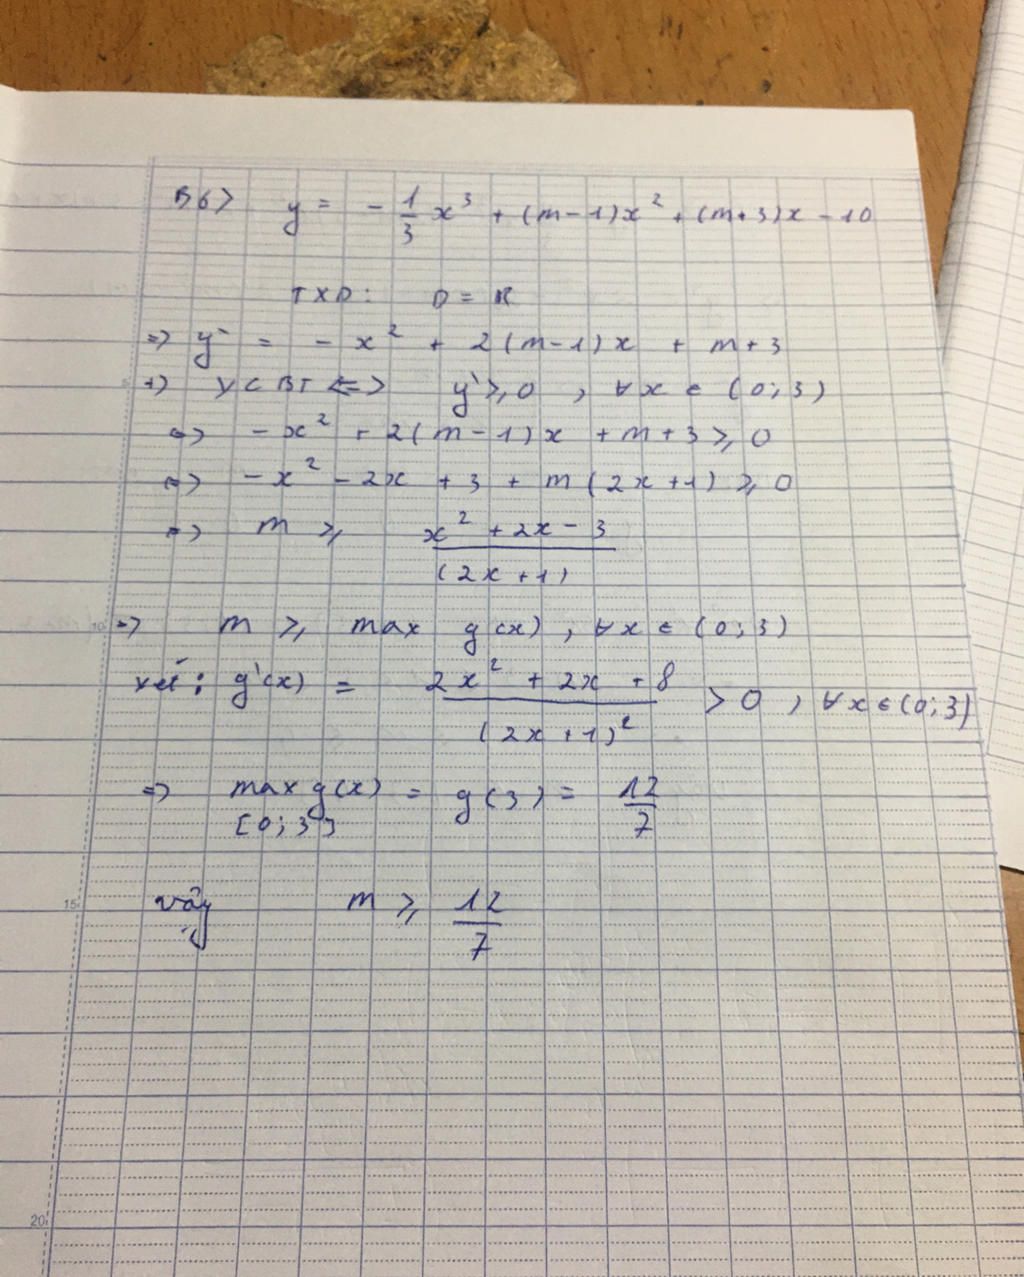 B6> y = - 1/3 x³ + (m-1)x² + (m+3)x - 10
TXD: D = R
=> y' = - x² + 2(m-1)x + m+3
+) YCBT <=> y' ≥ 0 , ∀x ∈ (0;3)
<=> -x² + 2(m-1)x + m+3 ≥ 0
<=> -x² - 2x + 3 + m(2x+1) ≥ 0
<=> m ≥ x² + 2x - 3 / (2x+1)
10 => m ≥ max g(x) , ∀x ∈ (0;3)
xét: g'(x) = 2x² + 2x + 8 / (2x+1)² > 0 , ∀x ∈ (0;3]
=> max g(x) = g(3) = 12/7
[0;3]
15 vậy m ≥ 12/7
20